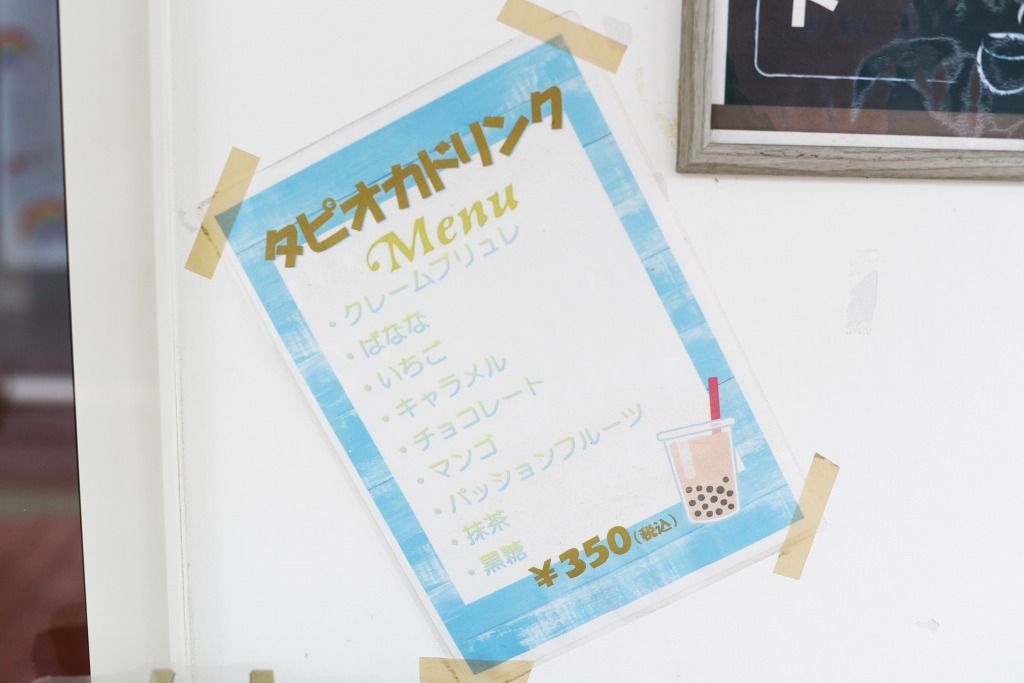 タピオカドリンク
Menu
・クレームブリュレ
・ばなな
・いちご
・キャラメル
・チョコレート
・マンゴ
・パッションフルーツ
・抹茶
・黒糖
¥350(税込)
ド